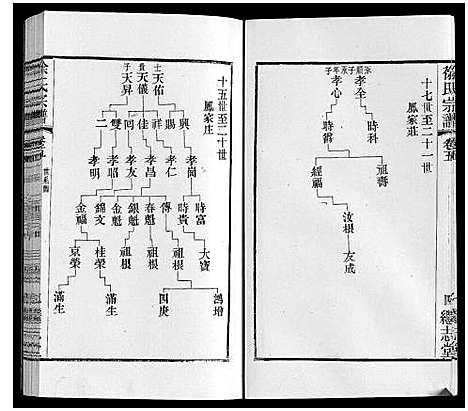 徐氏宗譜 卷五
十七世至二十一世
鳳家莊
孝全
孝心
時科
時爵
祖壽
經福
汝根
友成
繼志堂
十五世至二十世
鳳家庄
士 天佑
貴 天儀
子 天昇
興
賜
祥
佳
同
雙
二
孝崗
孝仁
孝昌
孝友
孝昭
孝明
時富
時貴
傳
春魁
銀魁
金魁
錦文
金福
大寶
祖根
祖根
祖根
桂榮
京榮
鴻增
四庚
滿生
滿生